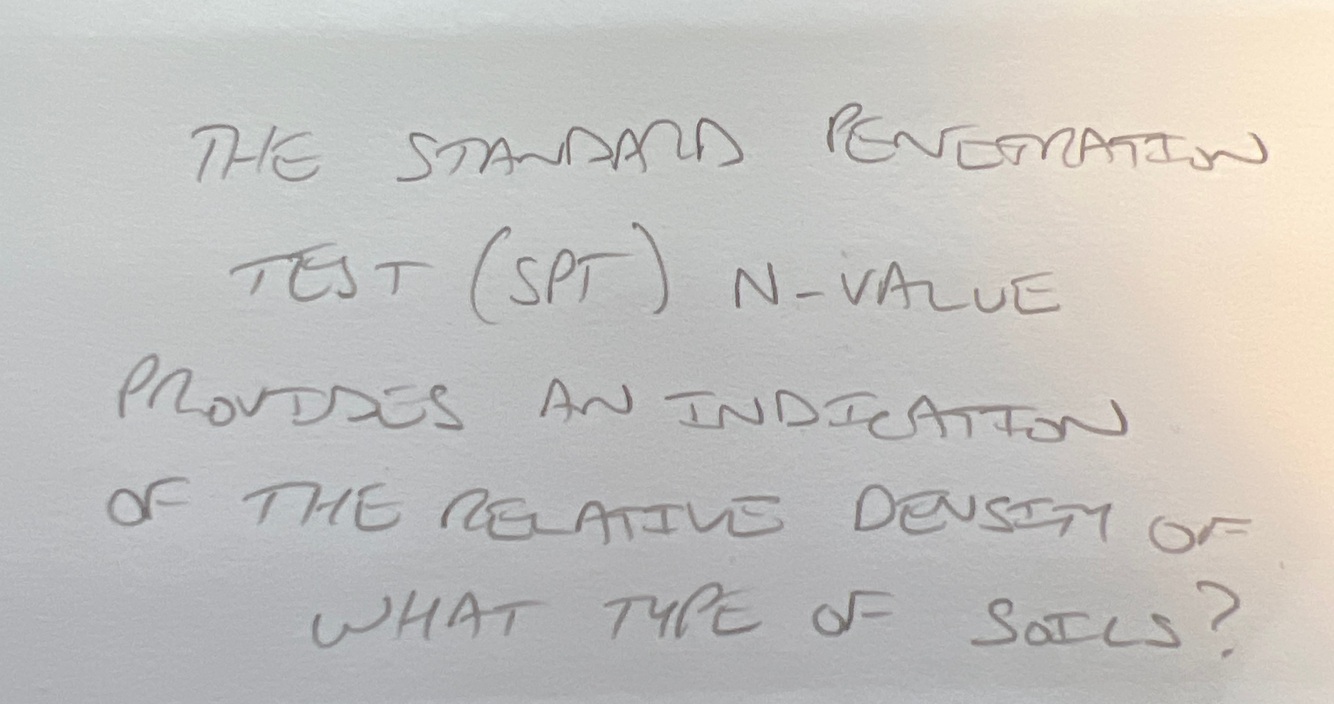 THE STANDARD PENETRATION
TEST (SPT) N-VALUE
PROVIDES AN INDICATION
OF THE RELATIVE DENSITY OF
WHAT TYPE OF SOILS?